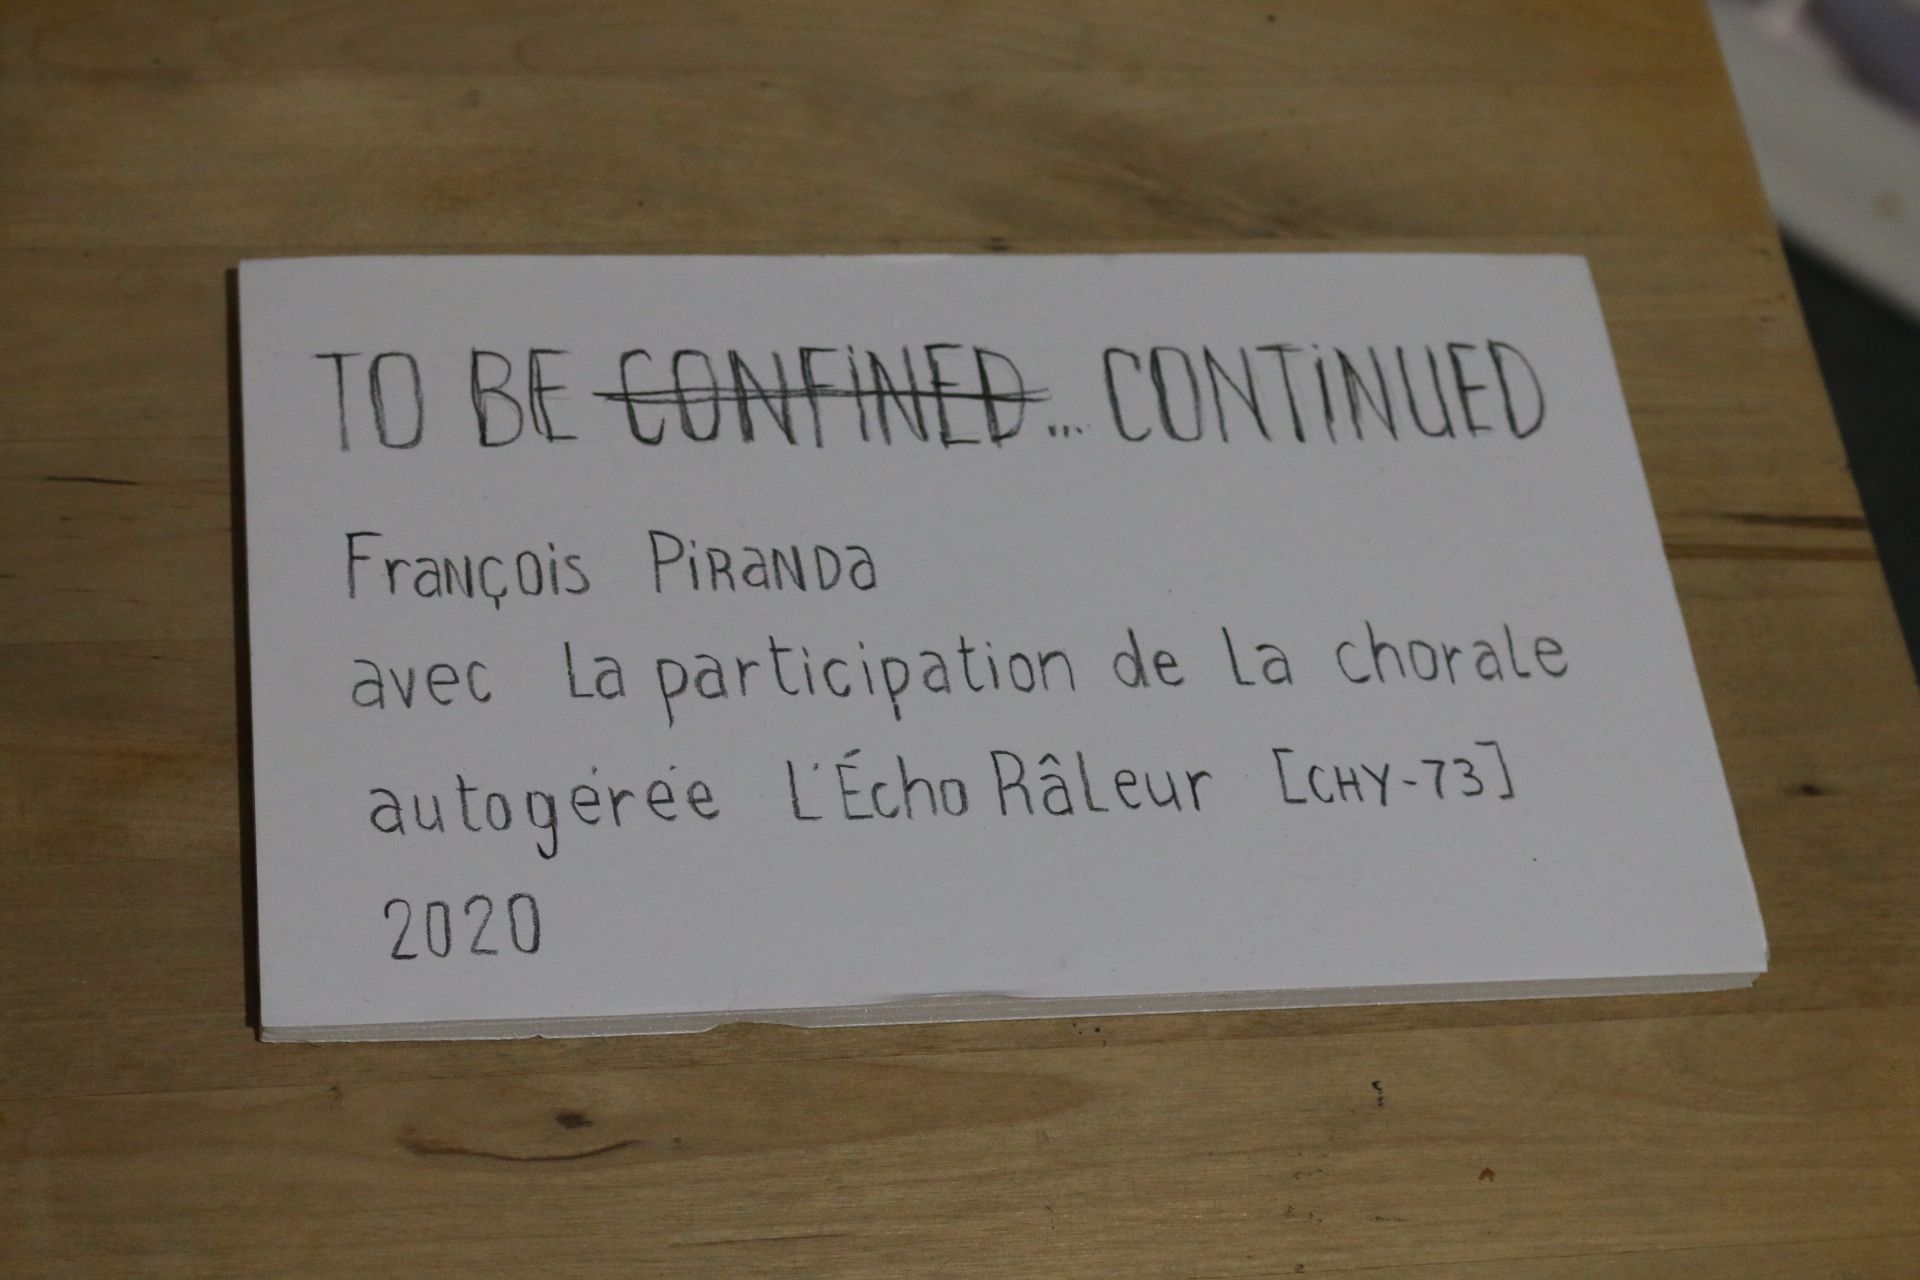 TO BE CONFINED... CONTINUED
François Piranda
avec la participation de la chorale
autogérée L'Écho Râleur [CHY-73]
2020